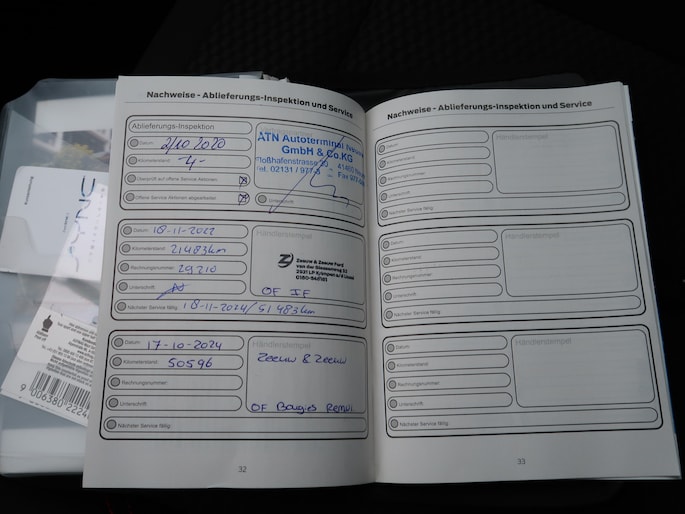 Nachweise - Ablieferungs-Inspektion und Service
Ablieferungs-Inspektion
Datum: 2/10 2020
Kilometerstand: -4-
Überprüft auf offene Service Aktionen:
Offene Service Aktionen abgearbeitet:
ATN Autoterminal
GmbH & Co.KG
Floßhafenstrasse
Tel. 02131 / 977-
Fax 977-
Unterschrift:
Datum: 18-11-2022
Kilometerstand: 21483km
Rechnungsnummer: 29210
Unterschrift:
Nächster Service fällig: 18-11-2024/51483km
Händlerstempel
Zeeuw & Zeeuw Ford
OF IF
Datum: 17-10-2024
Kilometerstand: 50596
Rechnungsnummer:
Unterschrift:
Nächster Service fällig:
Händlerstempel
Zeeuw & Zeeuw
OF Bougies Remvl.
32
Nachweise - Ablieferungs-Inspektion und Service
Datum:
Kilometerstand:
Rechnungsnummer:
Unterschrift:
Nächster Service fällig:
Händlerstempel
Datum:
Kilometerstand:
Rechnungsnummer:
Unterschrift:
Nächster Service fällig:
Händlerstempel
Datum:
Kilometerstand:
Rechnungsnummer:
Unterschrift:
Nächster Service fällig:
Händlerstempel
33
SYNC
9 006380 2224